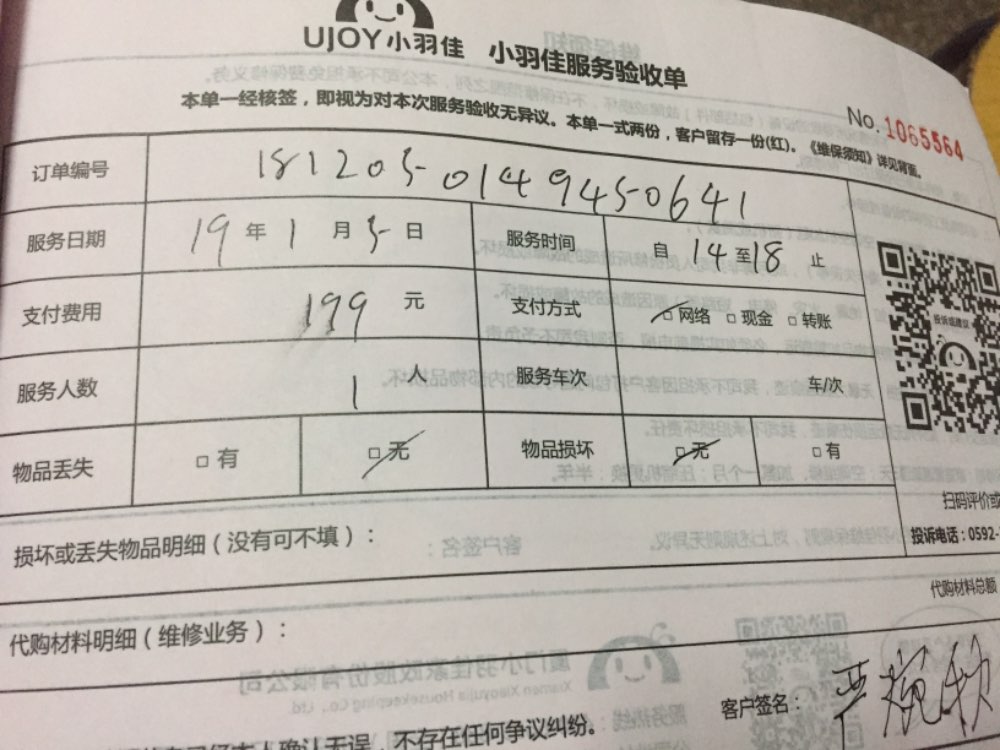 UJOY小羽佳 小羽佳服务验收单
本单一经核签，即视为对本次服务验收无异议。本单一式两份，客户留存一份(红)。《维保须知》详见背面。
No.1065564
订单编号 181205-0149450641
服务日期 19 年 1 月 5 日 服务时间 自 14 至 18 止
支付费用 199 元 支付方式 □网络 □现金 □转账
投诉或建议
服务人数 1 人 服务车次 车/次
物品丢失 □有 □无 物品损坏 □无 □有
扫码评价或
损坏或丢失物品明细（没有可不填）：
投诉电话：0592-
代购材料总额
代购材料明细（维修业务）：
客户签名：
本人确认无误，不存在任何争议纠纷。